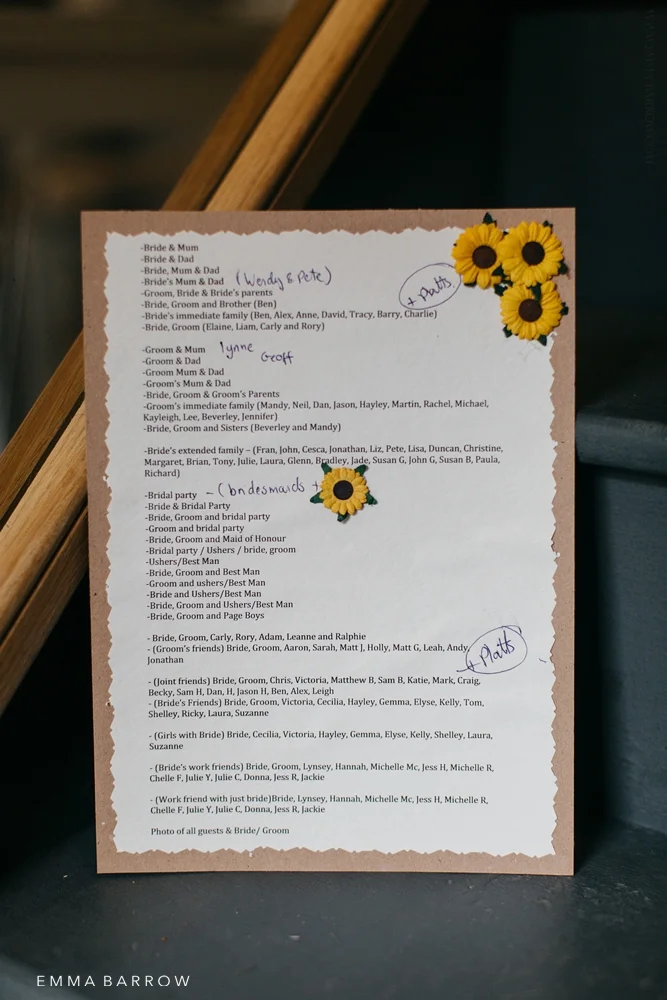 -Bride & Mum
-Bride & Dad
-Bride, Mum & Dad
-Bride's Mum & Dad (Wendy & Pete)
-Groom, Bride & Bride's parents
-Bride, Groom and Brother (Ben)
+ Platts
-Bride's immediate family (Ben, Alex, Anne, David, Tracy, Barry, Charlie)
-Bride, Groom (Elaine, Liam, Carly and Rory)
-Groom & Mum lynne
-Groom & Dad Geoff
-Groom Mum & Dad
-Groom's Mum & Dad
-Bride, Groom & Groom's Parents
-Groom's immediate family (Mandy, Neil, Dan, Jason, Hayley, Martin, Rachel, Michael,
Kayleigh, Lee, Beverley, Jennifer)
-Bride, Groom and Sisters (Beverley and Mandy)
-Bride's extended family – (Fran, John, Cesca, Jonathan, Liz, Pete, Lisa, Duncan, Christine,
Margaret, Brian, Tony, Julie, Laura, Glenn, Bradley, Jade, Susan G, John G, Susan B, Paula,
Richard)
-Bridal party - (bridesmaids +
-Bride & Bridal Party
-Bride, Groom and bridal party
-Groom and bridal party
-Bride, Groom and Maid of Honour
-Bridal party / Ushers / bride, groom
-Ushers/Best Man
-Bride, Groom and Best Man
-Groom and ushers/Best Man
-Bride and Ushers/Best Man
-Bride, Groom and Ushers/Best Man
-Bride, Groom and Page Boys
- Bride, Groom, Carly, Rory, Adam, Leanne and Ralphie
- (Groom's friends) Bride, Groom, Aaron, Sarah, Matt J, Holly, Matt G, Leah, Andy,
Jonathan
+ Platts
- (Joint friends) Bride, Groom, Chris, Victoria, Matthew B, Sam B, Katie, Mark, Craig,
Becky, Sam H, Dan, H, Jason H, Ben, Alex, Leigh
- (Bride's Friends) Bride, Groom, Victoria, Cecilia, Hayley, Gemma, Elyse, Kelly, Tom,
Shelley, Ricky, Laura, Suzanne
- (Girls with Bride) Bride, Cecilia, Victoria, Hayley, Gemma, Elyse, Kelly, Shelley, Laura,
Suzanne
- (Bride's work friends) Bride, Groom, Lynsey, Hannah, Michelle Mc, Jess H, Michelle R,
Chelle F, Julie Y, Julie C, Donna, Jess R, Jackie
- (Work friend with just bride)Bride, Lynsey, Hannah, Michelle Mc, Jess H, Michelle R,
Chelle F, Julie Y, Julie C, Donna, Jess R, Jackie
Photo of all guests & Bride/ Groom
EMMA BARROW